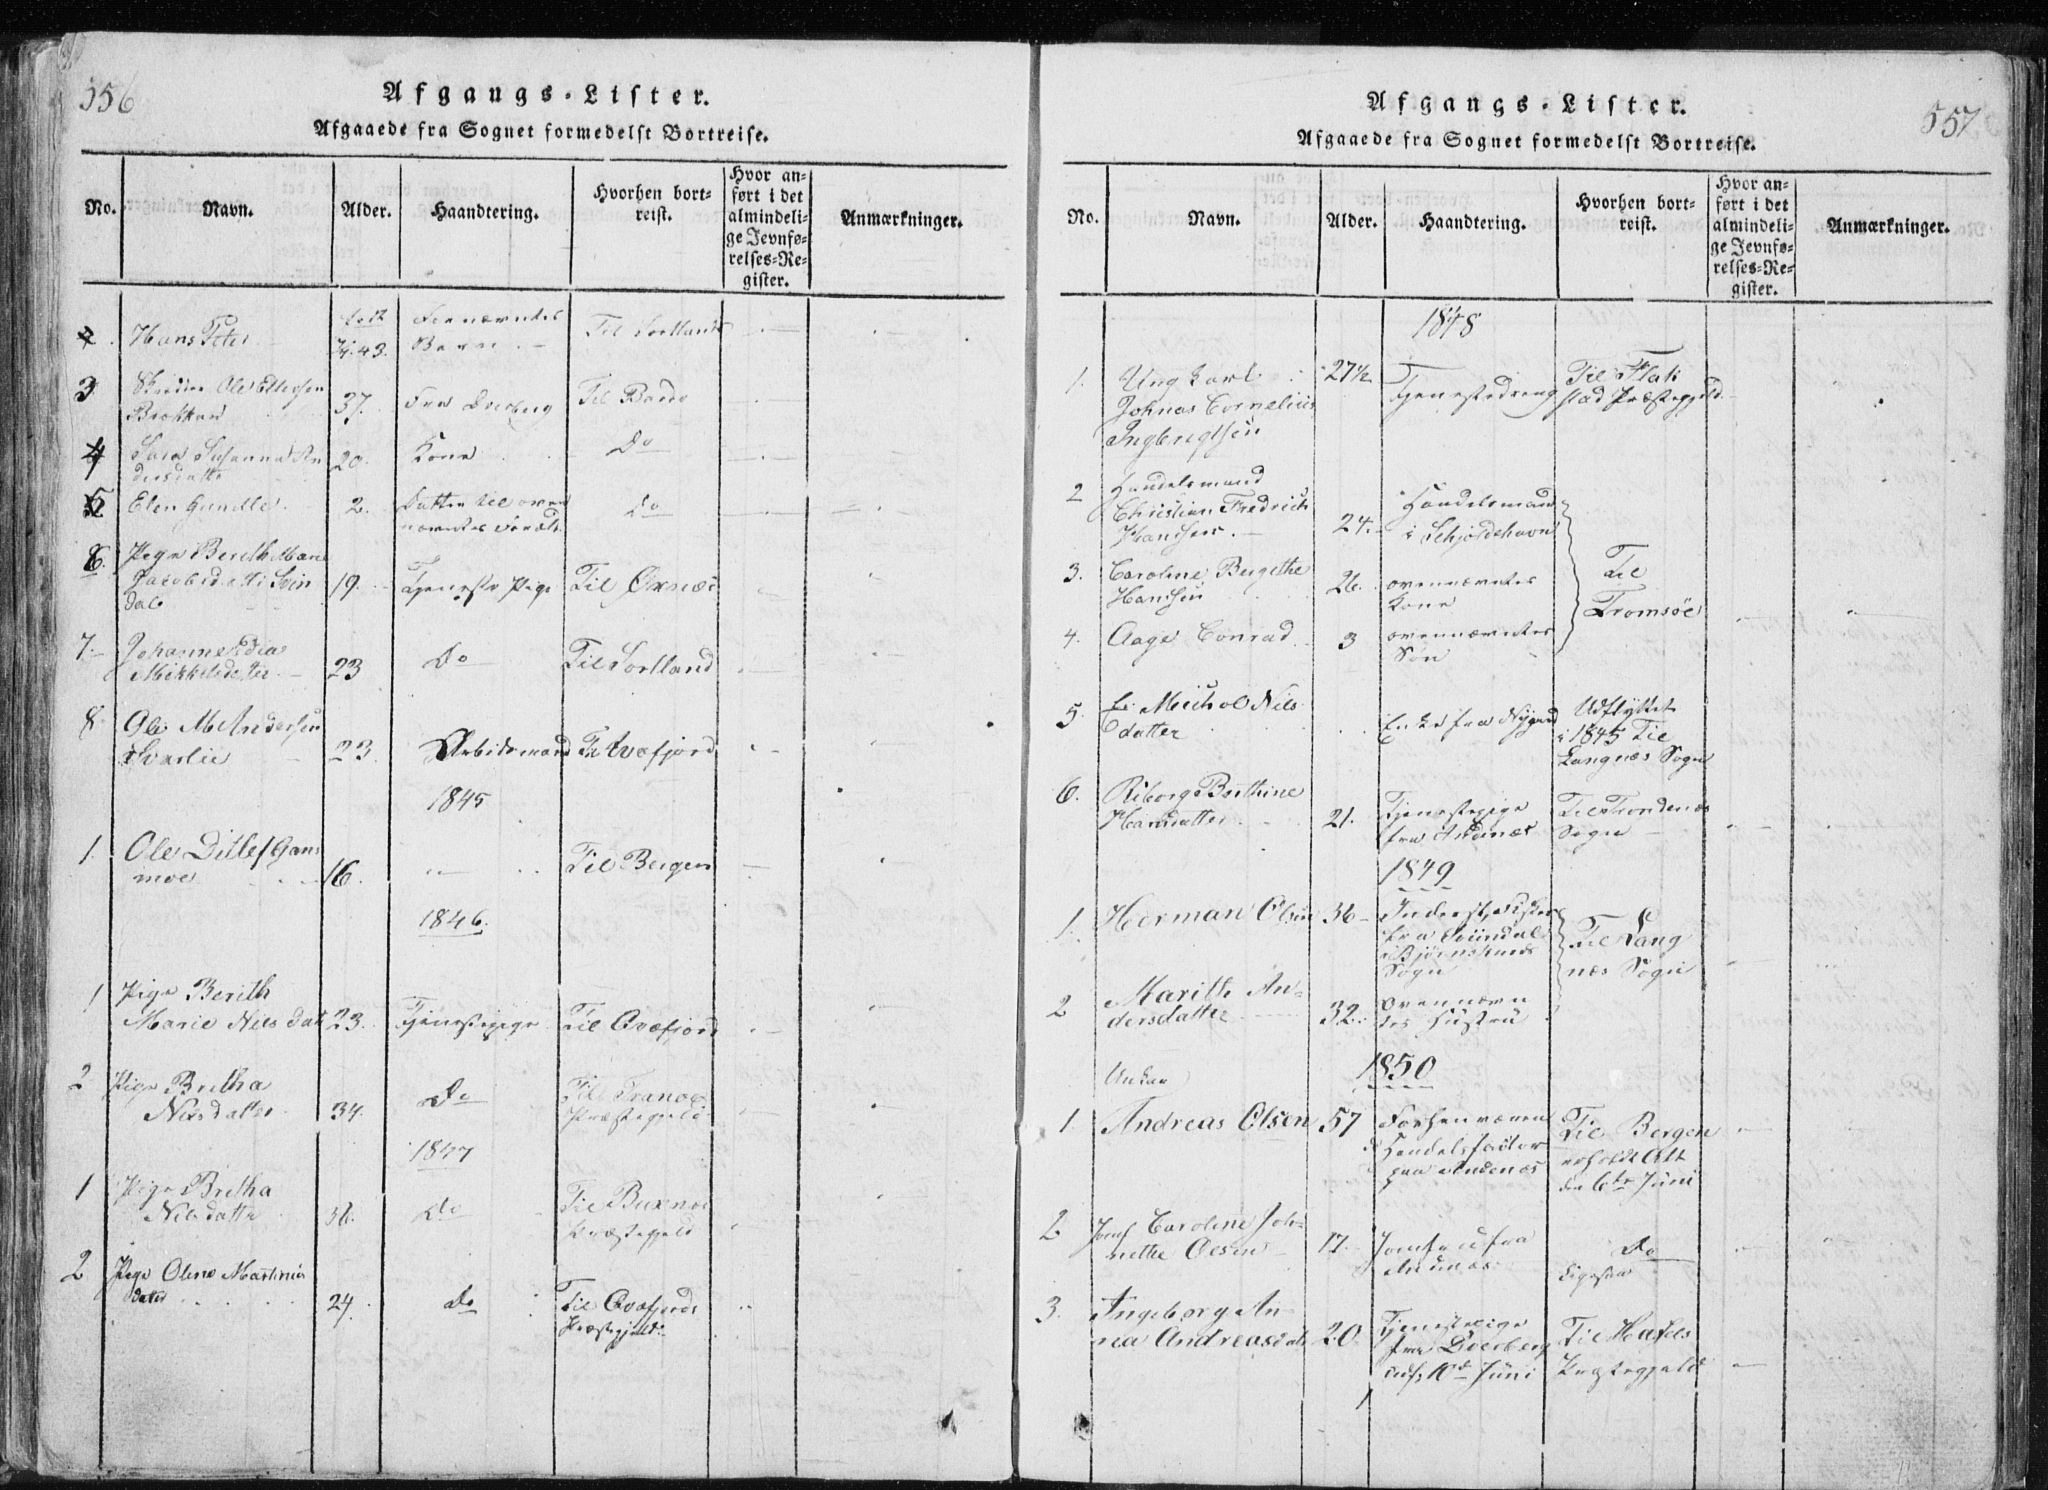 556
Afgangs-Lister.
Afgaaede fra Sognet formedelst Bortreise.
No.
Navn.
Alder.
Haandtering.
Hvorhen bort-
reist.
Hvor an-
ført i det
almindeli-
ge Jevnfø-
relses-Re-
gister.
Anmærkninger.
Hans Peter
43.
Barn
Til Sortland
3 Ole Ellefsen
37. fra Dverberg Til Bardo
4 Susanna An
dersdatter 20. Kone Do
5 Elen Gunelle 2. Datter til oven
nævntes Do
6 Pige Berith Marie
Jacobsdatter Svin
dal 19. Tjeneste Pige Til Øxnæs
7. Johanne
Mikkelsdatter 23 Do Til Sortland
8 Ole M Andersen
23 Arbeidsmand Til Qvæfjord
1845
1. Ole Ditlef Hans
moe 16. Til Bergen
1846.
1 Pige Berith
Marie Nilsdatt 23. Tjenestepige Til Qvæfjord
2 Pige Bretha
Nilsdatter 34. Do Til Tranøe
Præstegjeld
1847
1 Pige Bretha
Nilsdatter 36. Do Til Buxnæs
Præstegjeld
2 Pige Oline Martinus
datter 24. Do Til Qvæfjords
Præstegjeld
557
Afgangs-Lister.
Afgaaede fra Sognet formedelst Bortreise.
No.
Navn.
Alder.
Haandtering.
Hvorhen bort-
reist.
Hvor an-
ført i det
almindeli-
ge Jevnfø-
relses-Re-
gister.
Anmærkninger.
1848
1. Ungkarl 27½ Tjenestedreng Til Flak
stad Præstegjeld
Johnas Cornelius
Ingbrigtsen
2 Handelsmand
Christian Fredrich
Handsen. 24. Handelsmand
i Skjoldehavn
3. Caroline Bergithe
Hansen 26. ovennævntes
Kone Til
Tromsøe
4. Aage Conrad 3 ovennævntes
Søn
5. E. Michol Nils
datter Enke fra Nygaard Udflyttet
i 1845 Til
Langnæs Sogn
6. Riborg Berthine
Hansdatter 21. Tjenestepige
fra Andenæs Til Trondenæs
Sogn
1849
1. Herman Olsen 36 Inderst, Fisker
fra Svindal
i Bjørnskinds
Sogn Til Lang
næs Sogn
2 Marith An-
dersdatter 32. Ovennævn
tes Hustru
1850
1. Andreas Olsen 57 Forhenværen
de Handelsfactor
paa Andenæs Til Bergen
erholdt Att
den 6te Juni
2 Jomf Caroline Joh-
nethe Olsen 17. Jomfru fra
Andenæs Do
3. Ingeborg An-
na Andreasdatt 20. Tjenestepige
fra Dverberg
10de Juni Til Hassels
Præstegjeld